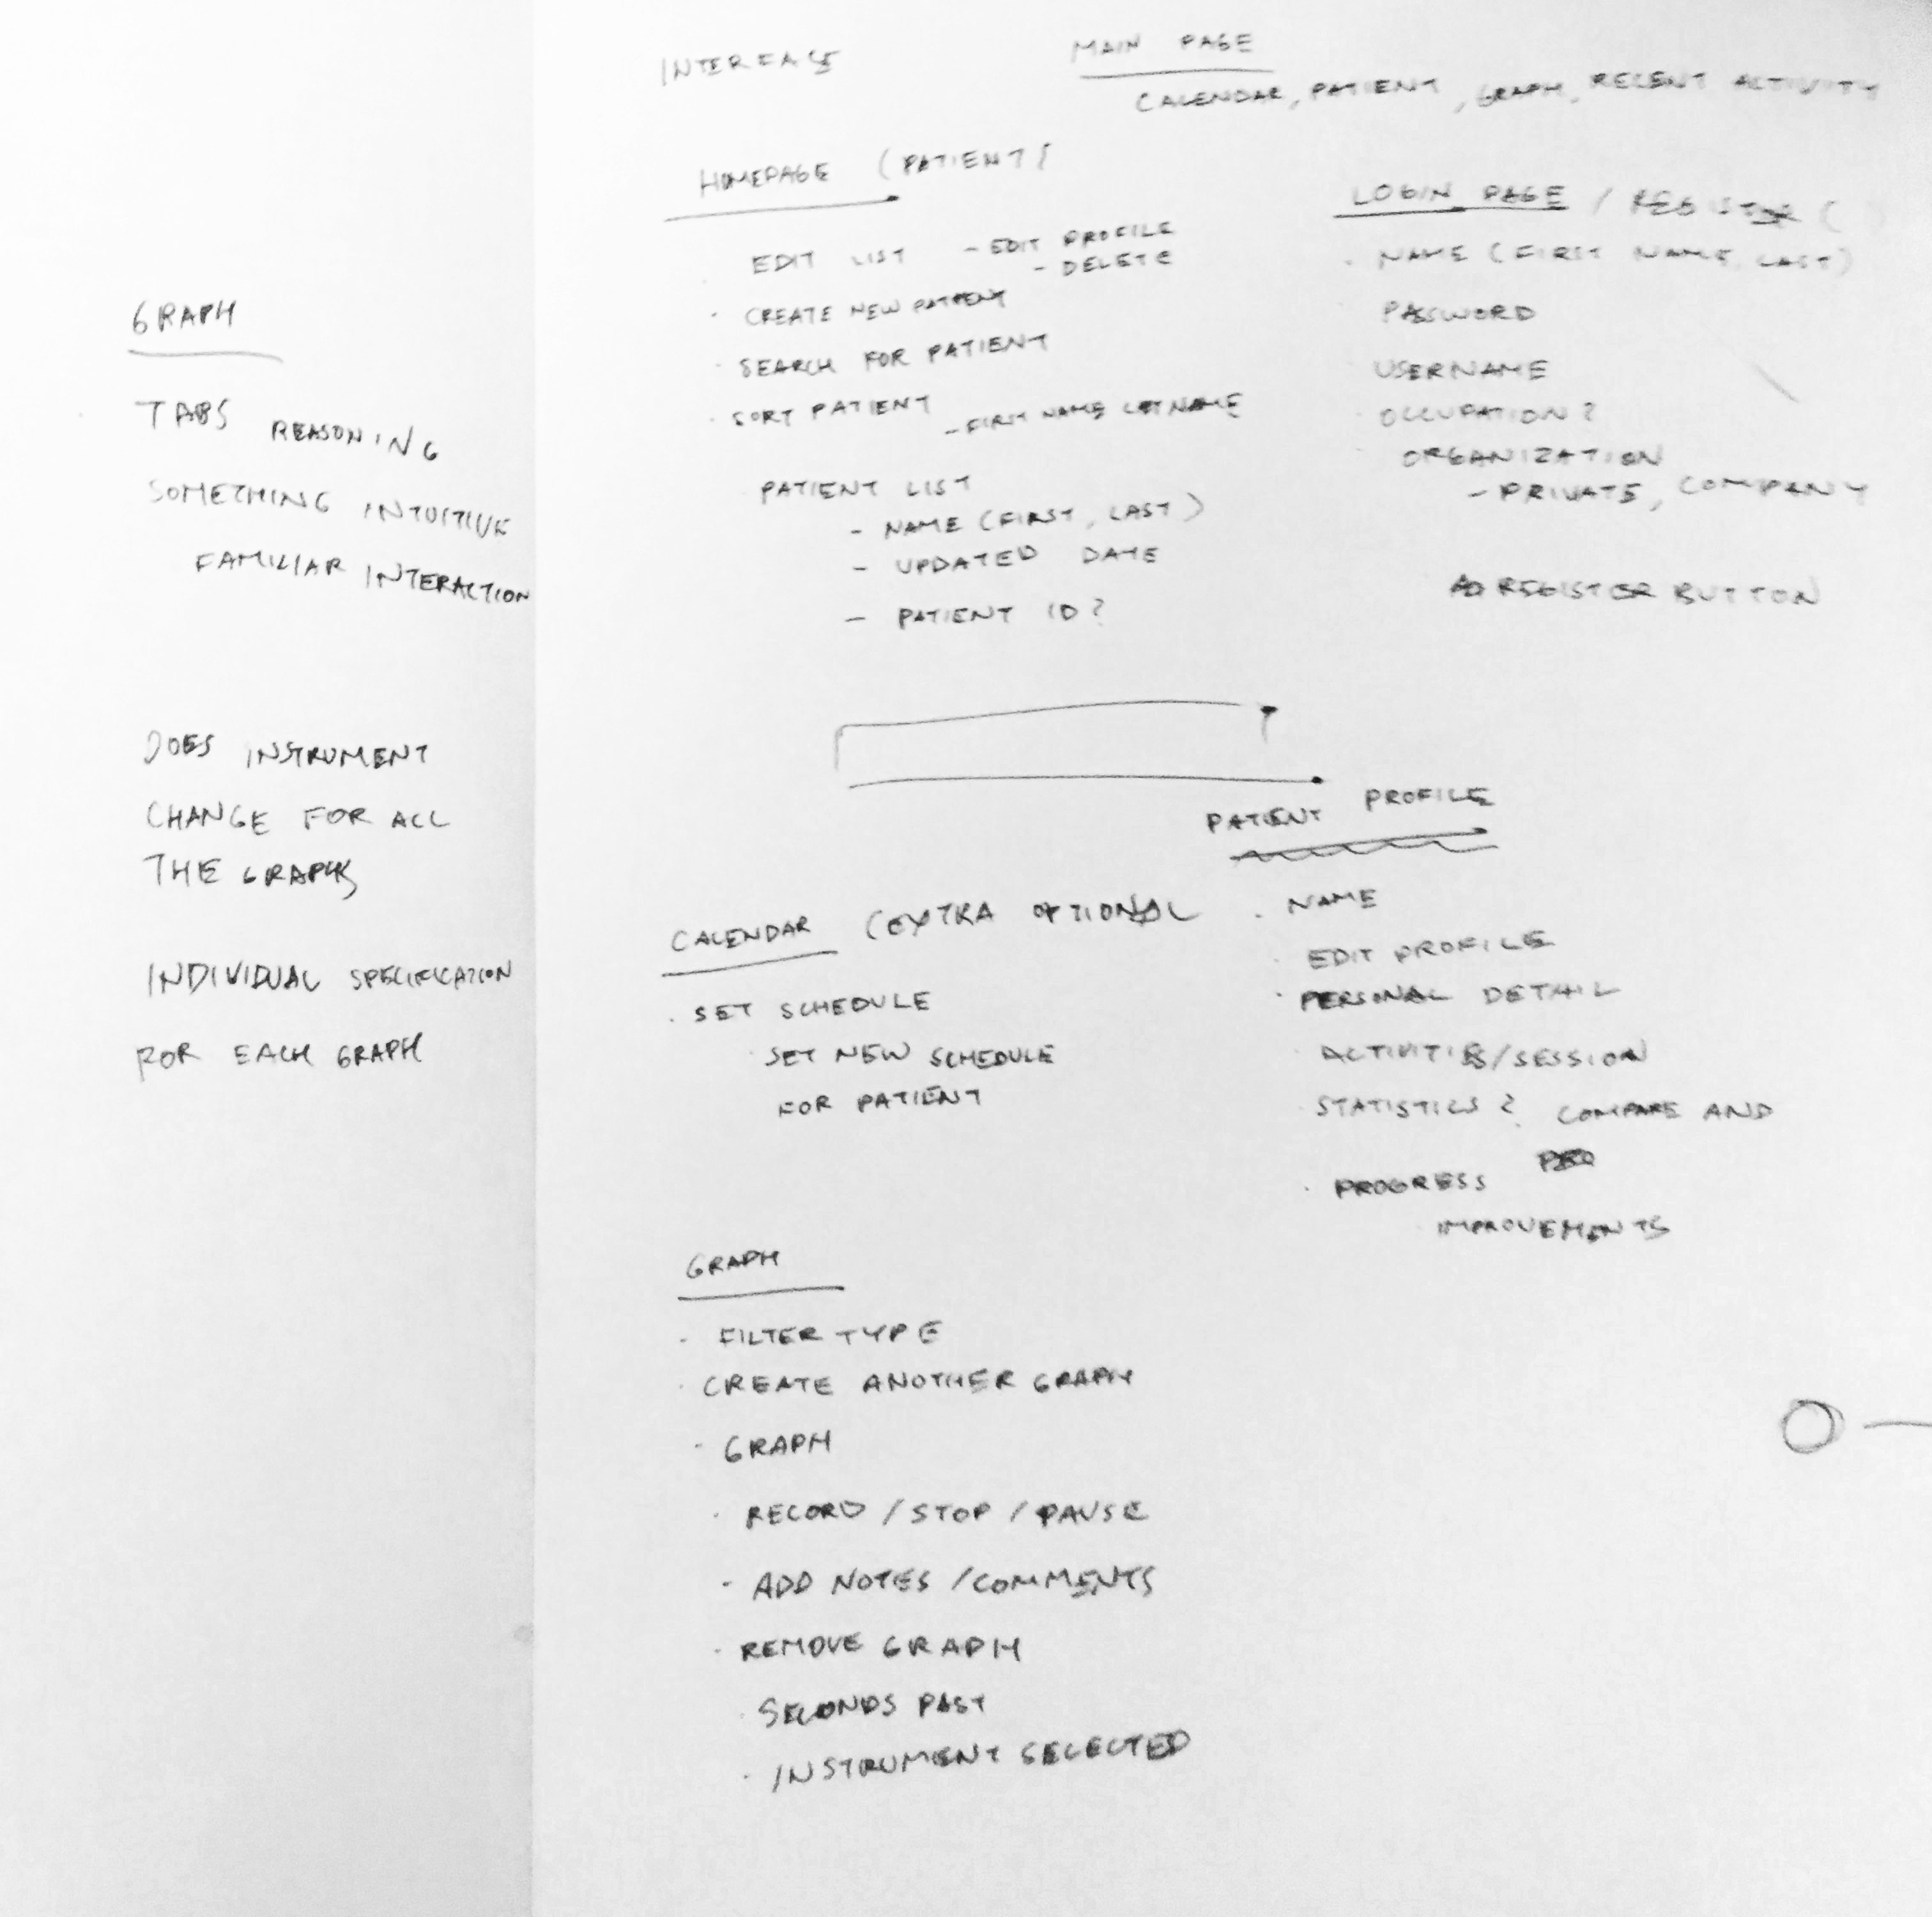 GRAPH
TABS REASONING
SOMETHING INTUITIVE
FAMILIAR INTERACTION
DOES INSTRUMENT
CHANGE FOR ALL
THE GRAPHS
INDIVIDUAL SPECIFICATION
FOR EACH GRAPH
INTERFACE
MAIN PAGE
CALENDAR, PATIENT, GRAPH, RECENT ACTIVITY
HOMEPAGE (PATIENT)
EDIT LIST - EDIT PROFILE
- DELETE
· CREATE NEW PATIENT
· SEARCH FOR PATIENT
· SORT PATIENT - FIRST NAME LAST NAME
PATIENT LIST
- NAME (FIRST, LAST)
- UPDATED DATE
- PATIENT ID?
LOGIN PAGE / REGISTER (
· NAME (FIRST NAME, LAST)
PASSWORD
USERNAME
· OCCUPATION?
· ORGANIZATION
- PRIVATE, COMPANY
REGISTER BUTTON
CALENDAR (EXTRA OPTIONAL
· SET SCHEDULE
· SET NEW SCHEDULE
FOR PATIENT
PATIENT PROFILE
· NAME
· EDIT PROFILE
· PERSONAL DETAIL
· ACTIVITIES/SESSION
· STATISTICS? COMPARE AND
· PROGRESS
IMPROVEMENTS
GRAPH
· FILTER TYPE
· CREATE ANOTHER GRAPH
· GRAPH
· RECORD / STOP / PAUSE
· ADD NOTES / COMMENTS
· REMOVE GRAPH
· SECONDS PAST
· INSTRUMENT SELECTED